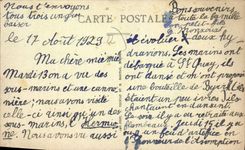 Nous t'envoyons
tous trois un gros
baiser
CARTE POSTALE
Bon souvenir
à toute la famille
un petit
le 17 Août 1929
Ma chère mémé
Mardi 13 on a vu des
sous-marins et une canon-
nière; mais on a visité
celle-ci ainsi qu'un des
sous-marins, l'Hermio-
ne. Nous avons vu aussi
et deux hy-
dravions. Les marins ont
débarqué à St Quay, ils
ont dansé et m'ont proposé
une bouteille de Byrrh. Ils
étaient un peu ivres. Ils
chantaient en dansant.
Le soir il y a eu retraite aux
flambeaux. Jeudi 15 il y a
eu un feu d'artifice en
l'honneur de l'Assomption